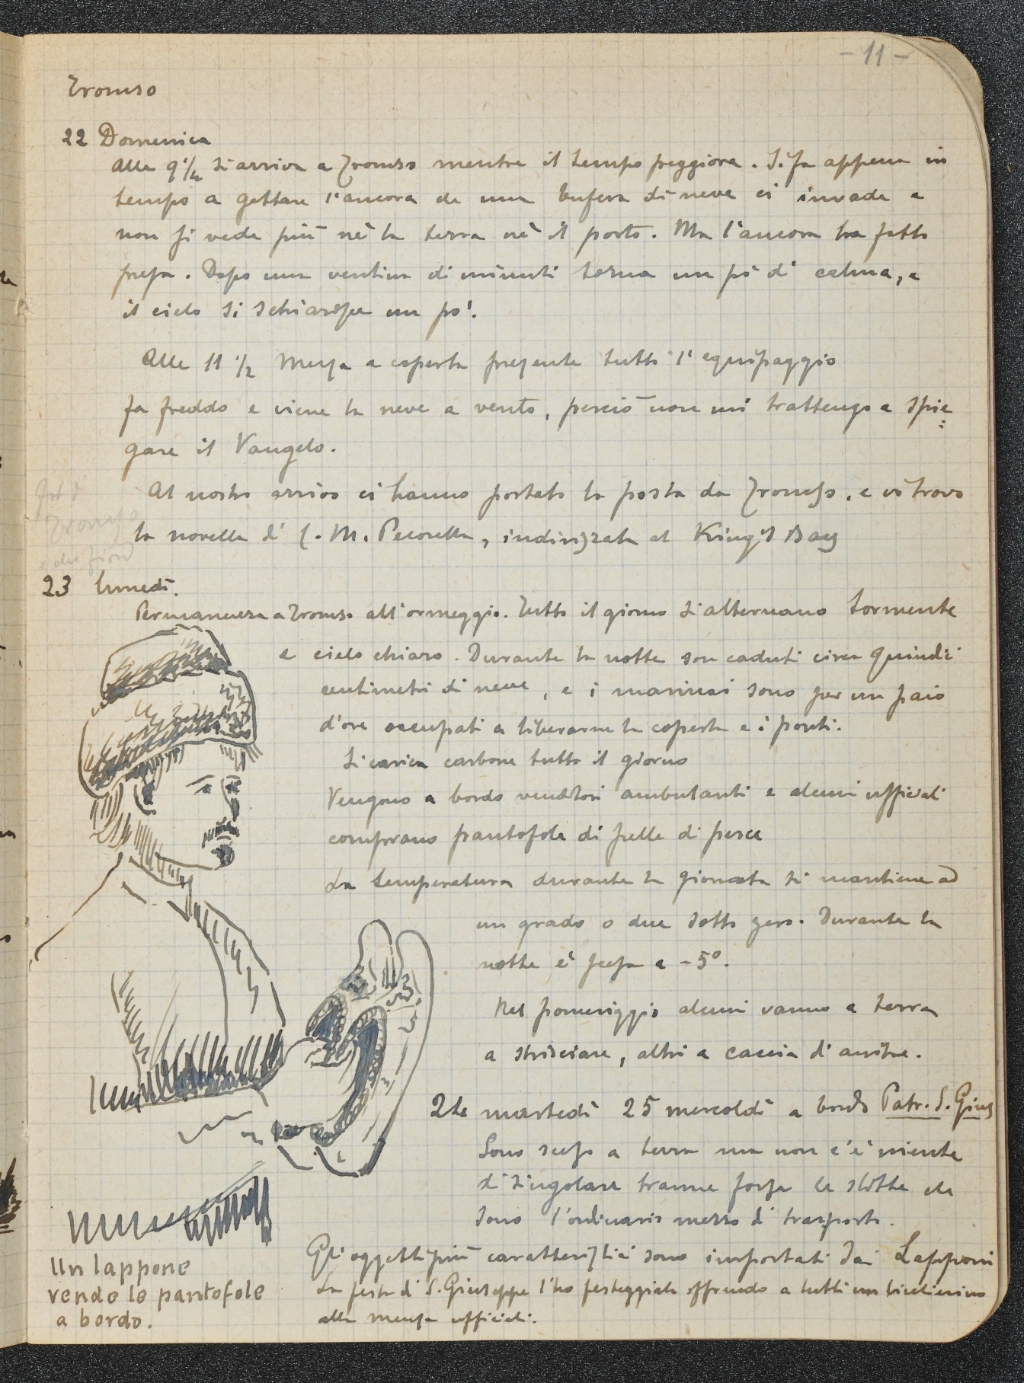 - 11 -
Tromso
22 Domenica
Alle 9 1/4 si arriva a Tromso mentre il tempo peggiora. S'fa appena in
tempo a gettare l'ancora che una bufera di neve ci invade e
non si vede più nè la terra nè il porto. Ma l'ancora ha fatto
presa. Dopo una ventina di minuti torna un pò di calma, e
il cielo si schiarisce un po'.
Alle 11 1/2 Messa a coperta presente tutto l'equipaggio
fa freddo e viene la neve a vento, perciò non mi trattengo a spie
gare il Vangelo.
Al nostro arrivo ci hanno portato la posta da Tromso, e vi trovo
la novella di S. M. Pecorella, indirizzata at King's Bay
23 lunedì.
Permanenza a Tromso all'ormeggio. Tutto il giorno s'alternano tormente
e cielo chiaro. Durante la notte son caduti circa quindici
centimetri di neve, e i marinai sono per un paio
d'ore occupati a liberarne la coperta e i ponti.
Si carica carbone tutto il giorno
Vengono a bordo venditori ambulanti e alcuni ufficiali
comprano pantofole di pelle di pesce
La temperatura durante la giornata si mantiene ad
un grado o due sotto zero. Durante la
notte è scesa a -5°.
Nel pomeriggio alcuni vanno a terra
a strisciare, altri a caccia di anitre.
24 martedì 25 mercoldì a bordo Patr. S. Gius
Sono sceso a terra ma non c'è niente
di singolare tranne forse le slitte che
sono l'ordinario mezzo di trasporto.
Gli oggetti più caratteristici sono importati dai Lapponi
La festa di S. Giuseppe l'ho festeggiata offrendo a tutti un bicchierino
alla mensa ufficiali.
Un lappone
vende le pantofole
a bordo.